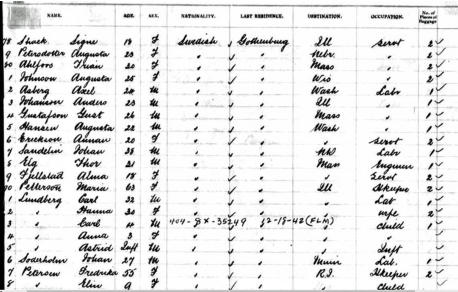 NAME. AGE. SEX. NATIONALITY. LAST RESIDENCE. DESTINATION. OCCUPATION. No. of Pieces of Baggage
78 Shack Signe 18 F Swedish Gothenburg Ill Servt 2
9 Petersdotter Augusta 23 F " " Nebr. " 2
80 20 F " " Mass " 2
1 Johnson Augusta 25 F " " Wis " 2
2 Asberg Axel 24 M " " Wash Labr 1
3 Johanson Anders 23 M " " Ill " 1
4 Gustafson Gust 26 M " " Mass " 1
5 Hansen Augusta 22 M " " Wash " 1
6 Erickson Annan 20 F " " " Servt 2
7 Sandelin Johan 38 M " " Labr 1
8 Elg Thor 21 M " " Mass Engineer 1
9 Fjellstad Alma 18 F " " " Servt 2
90 Petterson Maria 63 F " " Ill Hkeeper 2
1 Lundberg Carl 32 M " " " Lab 1
2 " Hanna 30 F " " " wife 2
3 " Carl 4 M 404-8X-35249 52-18-42 (FLM) child 1
4 " Anna 3 F " " " "
5 " Astrid Inft M " " " Inft
6 Soderholm Johan 27 M " " Minn Lab. 1
7 Peterson Fredrika 55 F " " R.I. Hkeeper 2
8 " Elin 9 F " " " child